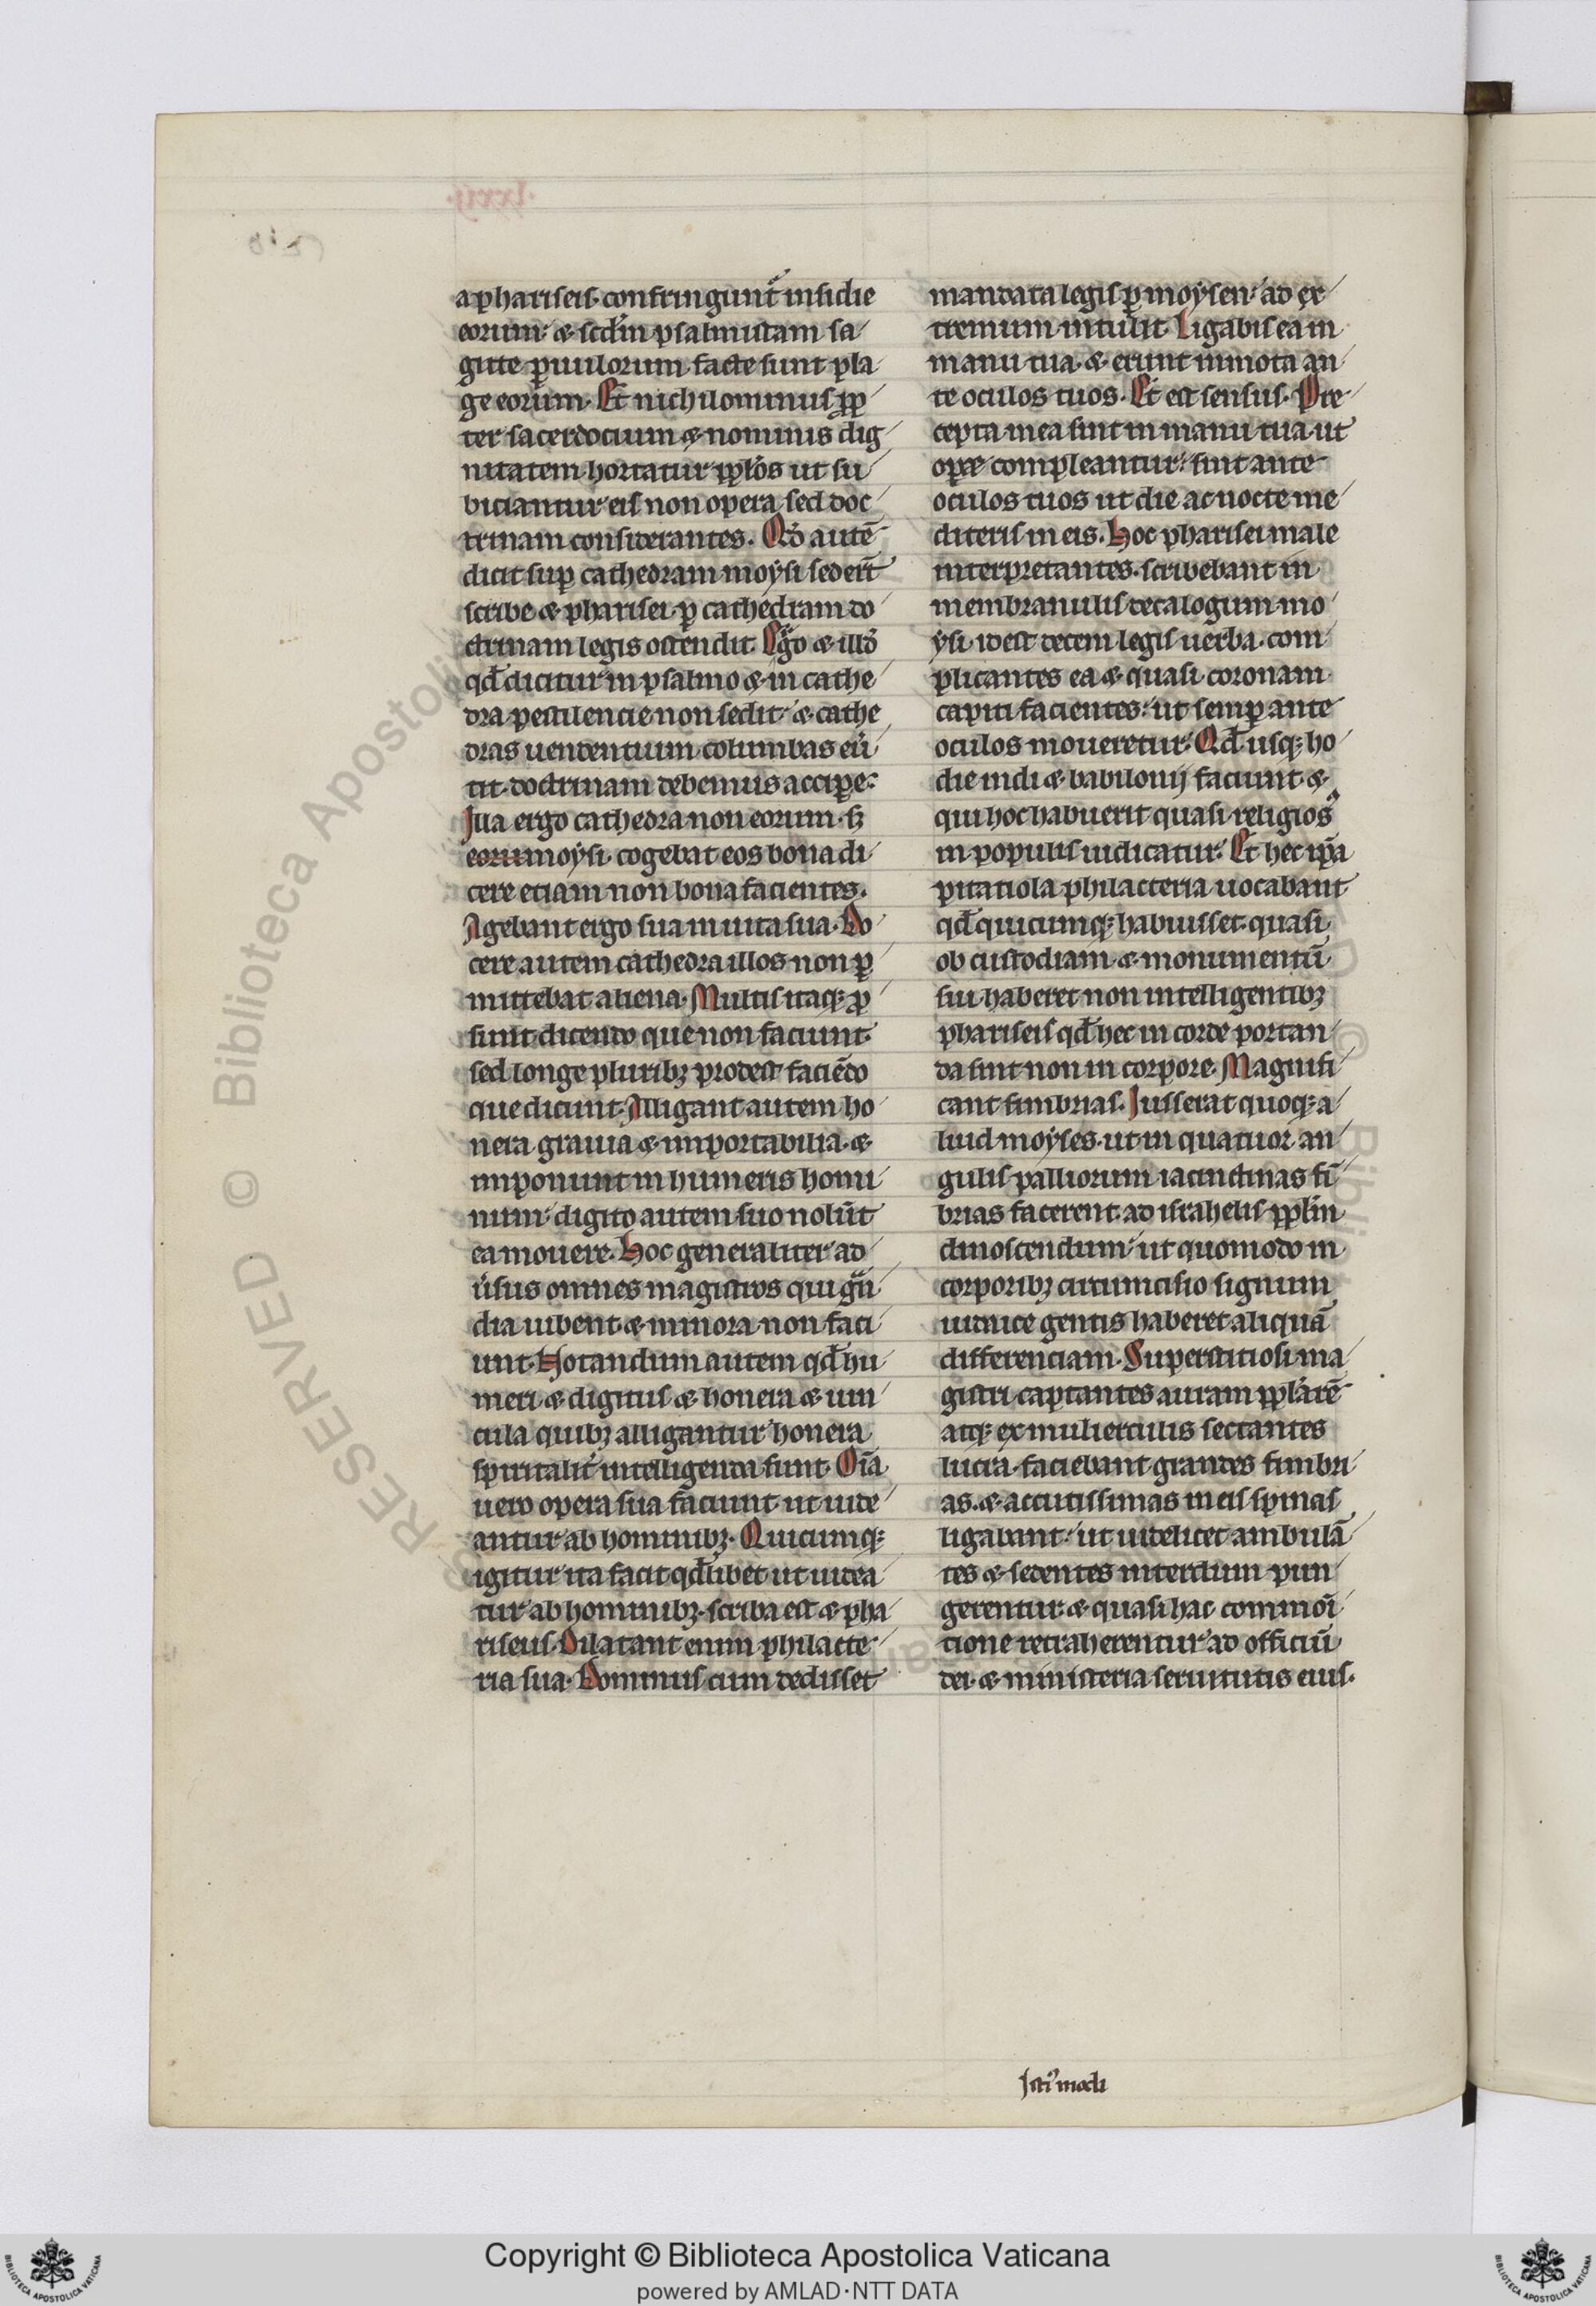 a phariseis· confringunt᷑ insidie
eorum: ⁊ scd̾m psalmistam sa
gitte ꝑuulorum facte sunt pla
ge eorum· Et nichilominus ꝓp
ter sacerdocium ⁊ nominis dig
nitatem hortatur pp̾los ut su
biciantur eis non opera sed doc
trinam considerantes. Qđ autē
dicit suꝑ cathedram moysi sederūt
scribe ⁊ pharisei· ꝑ cathedram do
ctrinam legis ostendit. Ergo ⁊ illđ
qđ dicitur in psalmo ⁊ in cathe
dra pestilencie non sedit: ⁊ cathe
dras uendentium columbas eu̾
tit· doctrinam debemus accipe:
Illa ergo cathedra non eorum· sꝫ
eoru moysi· cogebat eos bona di
cere etiam non bona facientes.
Agebant ergo sua in uita sua· Do
cere autem cathedra illos non ꝑ
mittebat aliena· Multis itaqꝫ ꝓ
sunt dicendo que non faciunt·
sed longe pluribꝫ prodest faciēdo
que dicunt· Alligant autem ho
nera grauia ⁊ importabilia· ⁊
imponunt in humeris homi
num: digito autem suo nolūt
ea mouere. Hoc generaliter ad
u̾sus omnes magistros qui gn̄
dia iubent ⁊ minora non faci
unt· Notandum autem qđ hu
meri ⁊ digitus ⁊ honera ⁊ uin
cula quibꝫ alligantur honera
spiritalit̾ intelligenda sunt· Oīa
uero opera sua faciunt ut uide
antur ab hominibꝫ. Quicumqꝫ
igitur ita facit qđlibet ut uidea
tur ab hominibꝫ· scriba est ⁊ pha
riseus· Dilatant enim philacte
ria sua· Dominus cum dedisset
mandata legis ꝑ moysen: ad ex
tremum intulit· Ligabis ea in
manu tua· ⁊ erunt inmota an
te oculos tuos. Et est sensus. Pre
cepta mea sint in manu tua ut
oꝑe compleantur: sint ante
oculos tuos ut die ac nocte me
diteris in eis. Hoc pharisei male
interpretantes· scribebant in
membranulis decalogum mo
ysi· idest decem legis uerba· com
plicantes ea ⁊ quasi coronam
capiti facientes: ut semꝑ ante
oculos moueretur· Qđ usqꝫ ho
die indi ⁊ babilonij faciunt ⁊
qui hoc habuerit quasi religios⁹
in populis iudicatur· Et hec
pitatiola philacteria uocabant
qđ quicumqꝫ habuisset· quasi
ob custodiam ⁊ monumentū
sui haberet non intelligentibꝫ
phariseis qđ hec in corde portan
da sint non in corpore. Magnifi
cant fimbrias. Iusserat quoqꝫ a
liud moyses· ut in quatuor an
gulis palliorum iacinctinas fī
brias facerent· ad israhelis pp̾lm
dinoscendum: ut quomodo in
corporibꝫ circumcisio signum
iudaice gentis haberet aliquā
differenciam. Superstitiosi ma
gistri captantes auram pp̾larē
atqꝫ ex mulierculis sectantes
lucra· faciebant grandes fimbri
as. ⁊ accutissimas in eis spinas
ligabant: ut uidelicet ambulā
tes ⁊ sedentes interdum pun
gerentur: ⁊ quasi hac
tione retraherentur ad officiū
dei· ⁊ ministeria seruitutis eius.